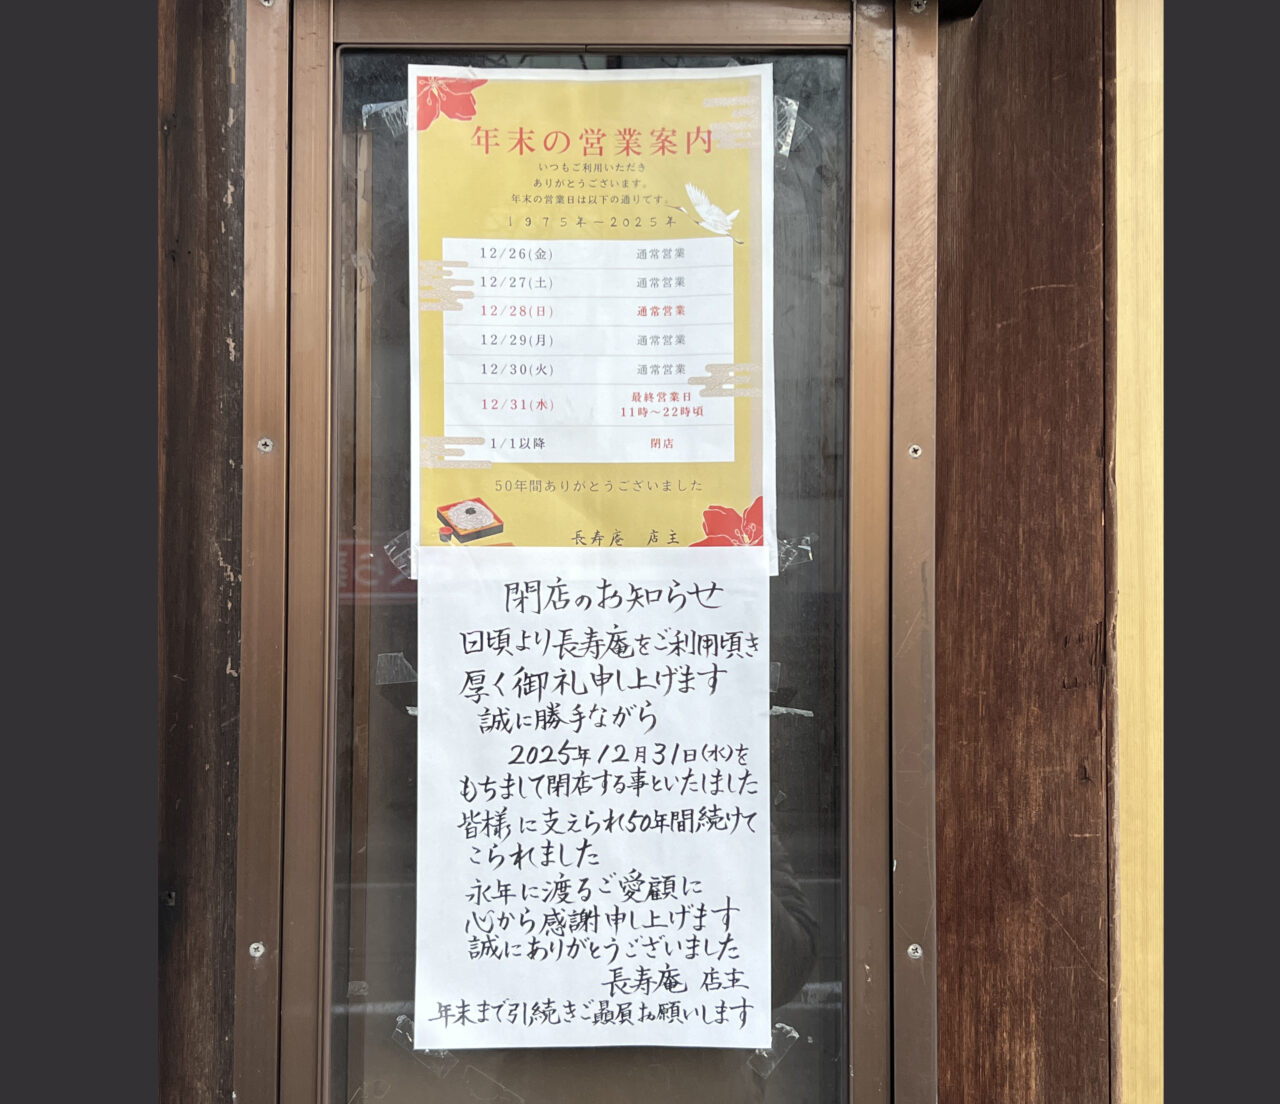 年末の営業案内
いつもご利用いただき
ありがとうございます。
年末の営業日は以下の通りです。
1975年ー2025年
12/26(金) 通常営業
12/27(土) 通常営業
12/28(日) 通常営業
12/29(月) 通常営業
12/30(火) 通常営業
12/31(水) 最終営業日
11時〜22時頃
1/1以降 閉店
50年間ありがとうございました
長寿庵 店主
閉店のお知らせ
日頃より長寿庵をご利用頃き
厚く御礼申し上げます
誠に勝手ながら
2025年12月31日(水)を
もちまして閉店する事といたしました
皆様に支えられ50年間続けて
こられました
永年に渡るご愛顧に
心から感謝申し上げます
誠にありがとうございました
長寿庵 店主
年末まで引続きご贔屓お願いします